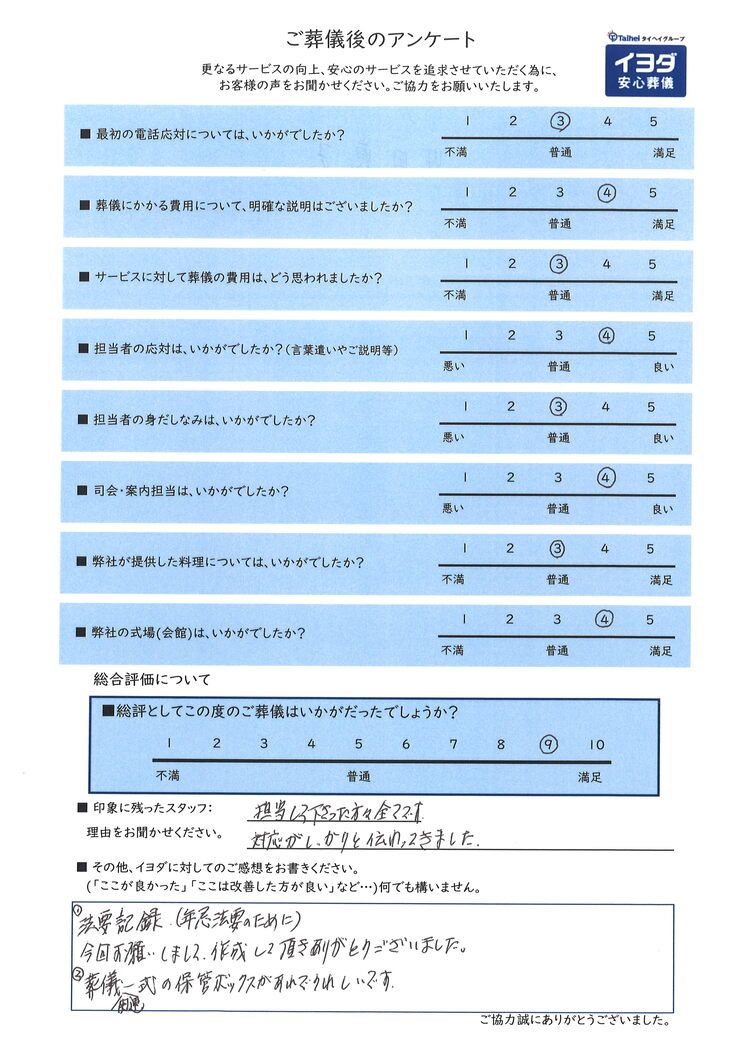 ご葬儀後のアンケート
Taihei タイヘイグループ
イヨダ
安心葬儀
更なるサービスの向上、安心のサービスを追求させていただく為に、
お客様の声をお聞かせください。ご協力をお願いいたします。
■ 最初の電話応対については、いかがでしたか？
1 2 3 4 5
不満 普通 満足
■ 葬儀にかかる費用について、明確な説明はございましたか？
1 2 3 4 5
不満 普通 満足
■ サービスに対して葬儀の費用は、どう思われましたか？
1 2 3 4 5
不満 普通 満足
■ 担当者の応対は、いかがでしたか？(言葉遣いやご説明等)
1 2 3 4 5
悪い 普通 良い
■ 担当者の身だしなみは、いかがでしたか？
1 2 3 4 5
悪い 普通 良い
■ 司会・案内担当は、いかがでしたか？
1 2 3 4 5
悪い 普通 良い
■ 弊社が提供した料理については、いかがでしたか？
1 2 3 4 5
不満 普通 満足
■ 弊社の式場(会館)は、いかがでしたか？
1 2 3 4 5
不満 普通 満足
総合評価について
■総評としてこの度のご葬儀はいかがだったでしょうか？
1 2 3 4 5 6 7 8 9 10
不満 普通 満足
■ 印象に残ったスタッフ： 担当して下さった方々全てです
理由をお聞かせください。 対応がしっかりと伝わってきました.
■ その他、イヨダに対してのご感想をお書きください。
(「ここが良かった」「ここは改善した方が良い」など…)何でも構いません。
① 法要記録.(年忌法要のために)
今回お願いしまして、作成して頂きありがとうございました。
② 葬儀一式の保管ボックスがあればうれしいです.
ご協力誠にありがとうございました。